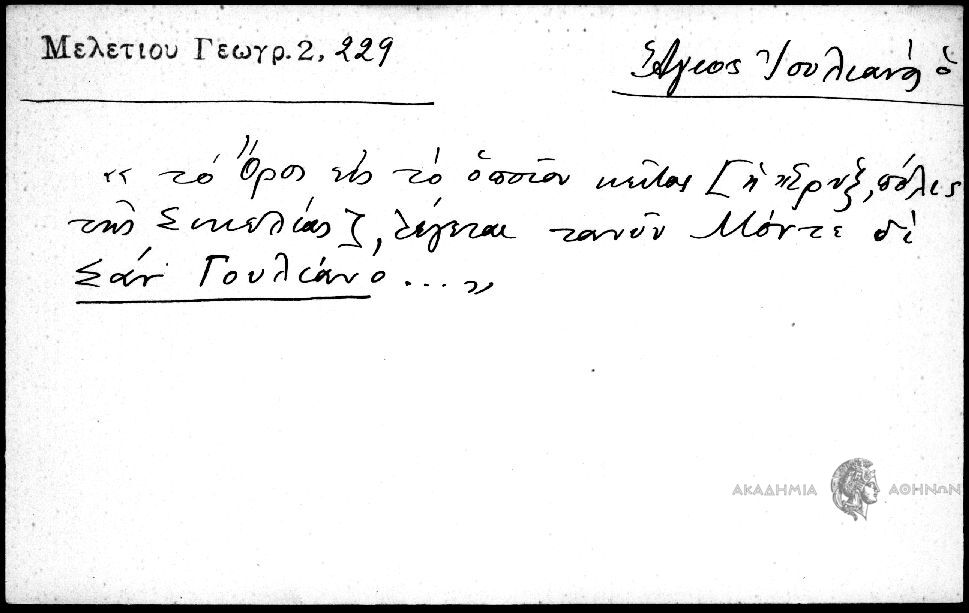 Μελετίου Γεωγρ. 2, 229
Ἅγιος Ἰουλιανός ὁ
« τὸ Ὄρος εἰς τὸ ὁποῖον κεῖται [ἡ Ἔρυξ, πόλις
τῆς Σικελίας], λέγεται τανῦν Μόντε δὶ
Σάν Γουλιάνο ... »
ΑΚΑΔΗΜΙΑ ΑΘΗΝΩΝ